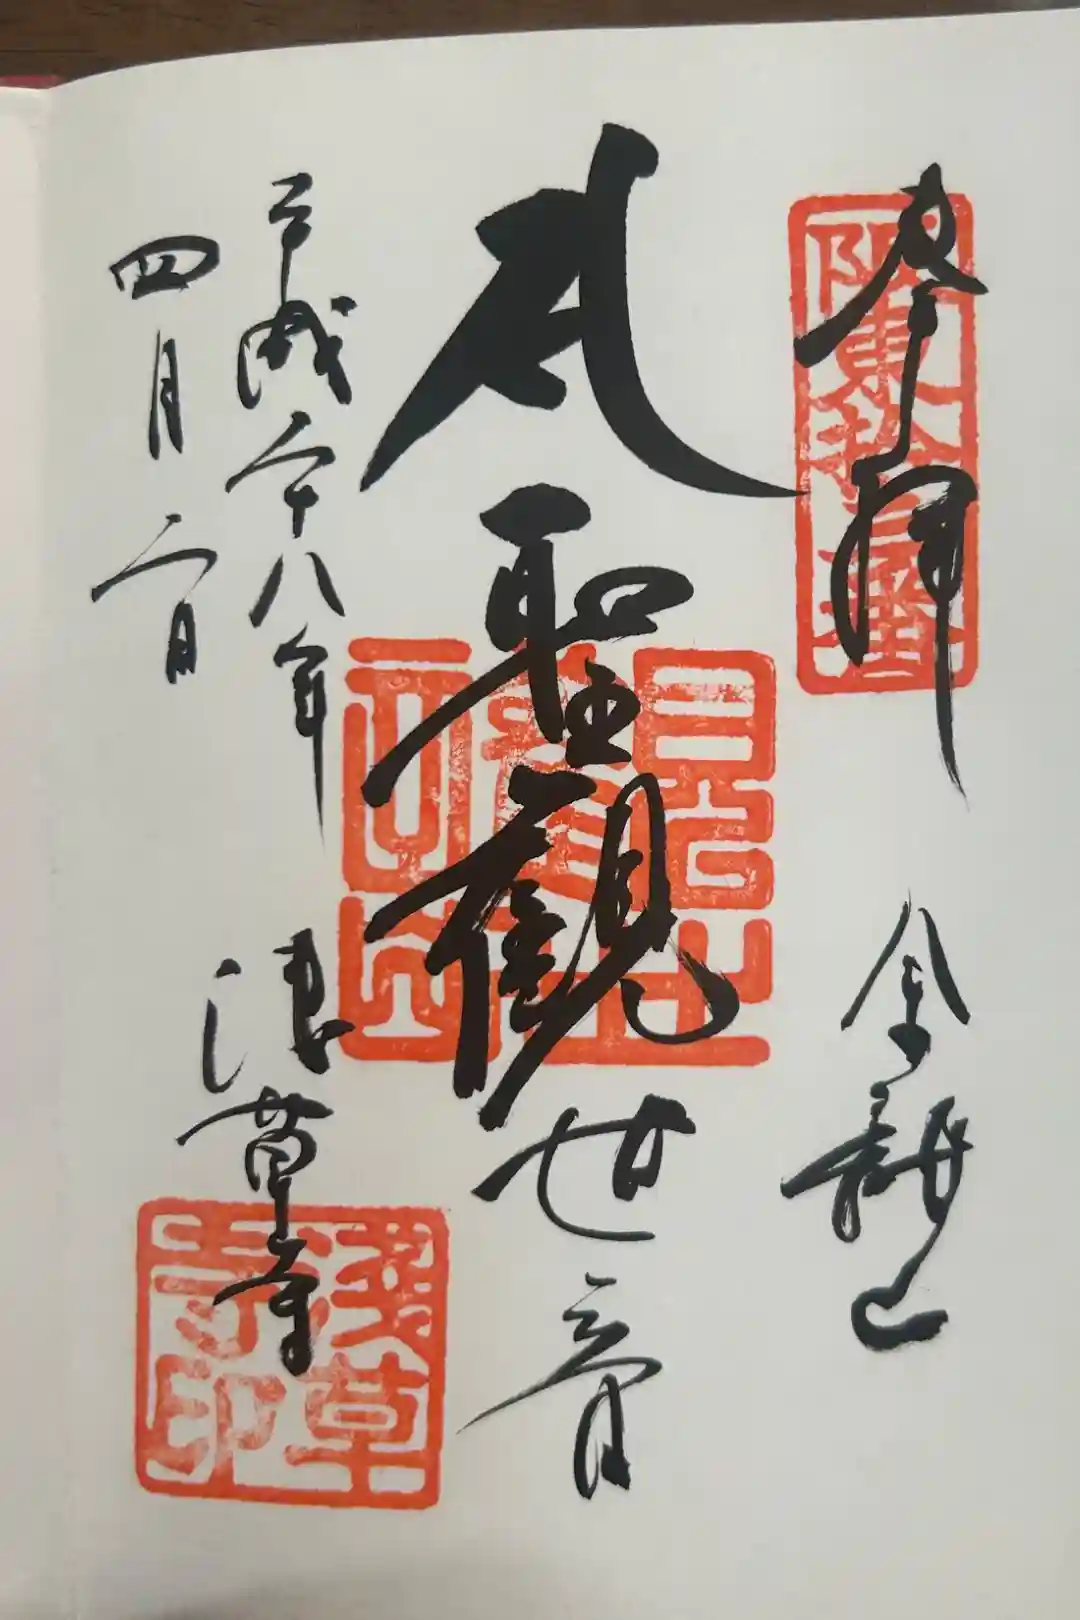 奉拝
金龍山
聖観世音
平成二十八年
四月二日
浅草寺
阪東拾三番
浅草寺印